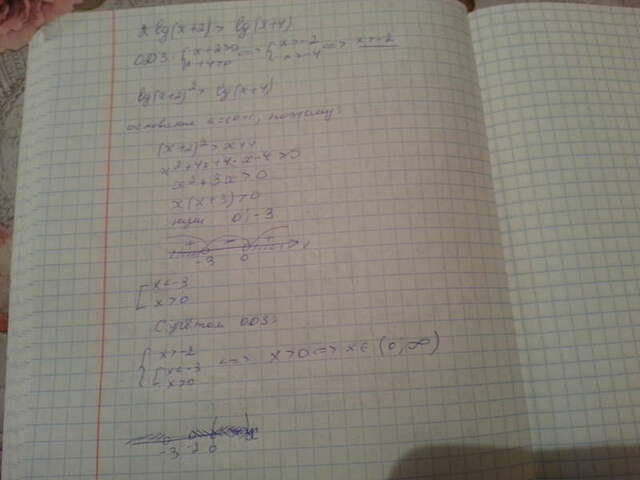 2 lg(x+2) > lg(x+4)
ОДЗ: { x+2>0 x+4>0 <=> { x>-2 x>-4 <=> x>-2
lg(x+2)² > lg(x+4)
основание a=10>1, поэтому:
(x+2)² > x+4
x²+4x+4-x-4>0
x²+3x>0
x(x+3)>0
нули 0; -3
+ - + x
-3 0
[ x<-3
x>0
С учётом ОДЗ:
{ x>-2
[ x<-3 <=> x>0 <=> x∈(0,∞)
x>0
-3 -2 0